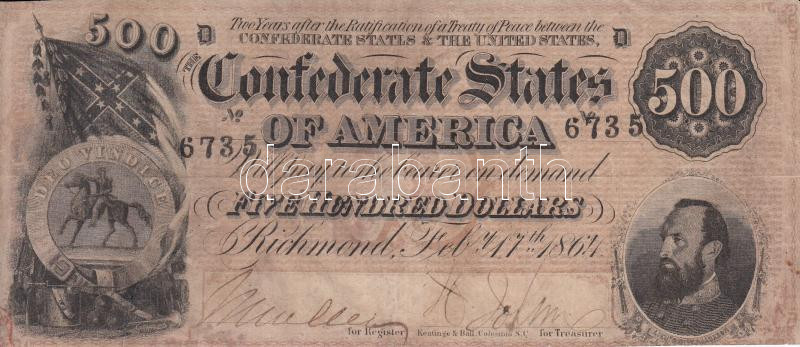 Two Years after the Ratification of a Treaty of Peace between the
CONFEDERATE STATES & THE UNITED STATES,
500 D D
THE
Confederate States
500
OF AMERICA
No 6735 No 6735
DEO VINDICE
Will pay to the bearer on demand
darabanth
FIVE HUNDRED DOLLARS
Richmond, Feby. 17th 1864
for Register Keatinge & Ball, Columbia S.C. for Treasurer